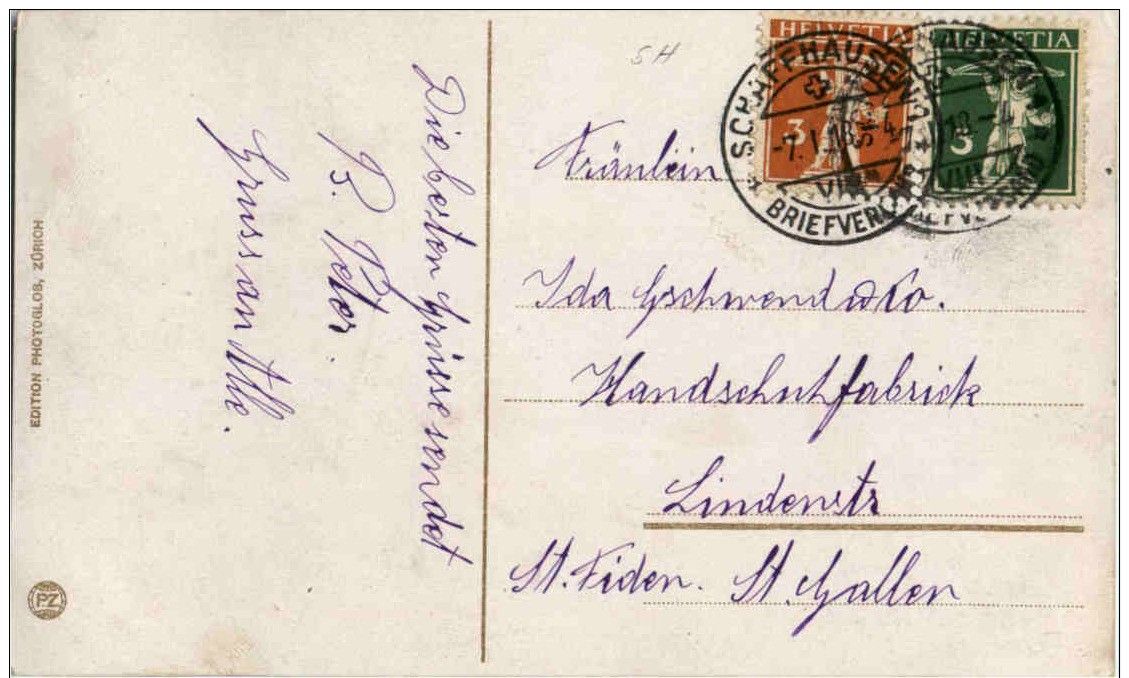 EDITION PHOTOGLOB, ZÜRICH
PZ
Die besten Grüsse sendet
B. Peter.
Gruss an Alle.
SH
HELVETIA
3
HELVETIA
3
SCHAFFHAUSEN
-7. I. 18.-4
VIII
BRIEFVERS
Fräulein
Ida Gschwend & Co.
Handschuhfabrick
Lindenstr
St. Fiden. St. Gallen